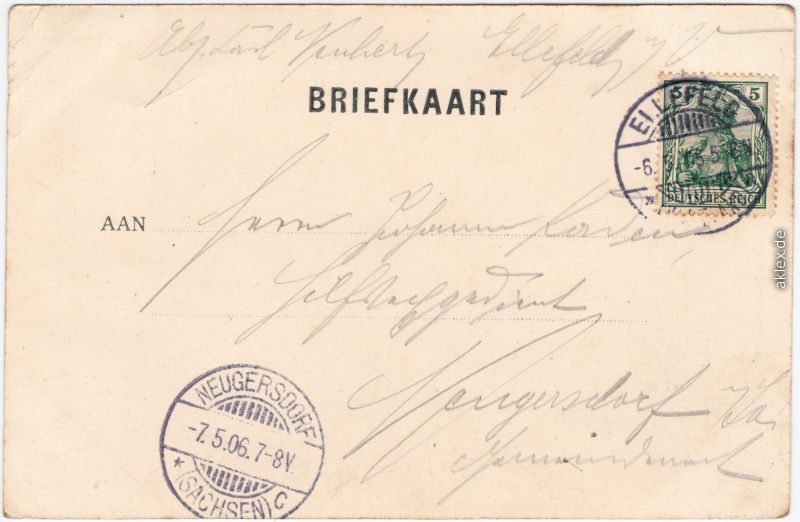 Abs. Carl Neubertz Ellefeld i/V
BRIEFKAART
5 5
ELLEFELD
-6.
DEUTSCHES REICH
AAN Herrn Johann
Neugersdorf i/Sa
Gemeindeamt
NEUGERSDORF
-7.5.06.7-8V.
* (SACHSEN) C
aklex.de